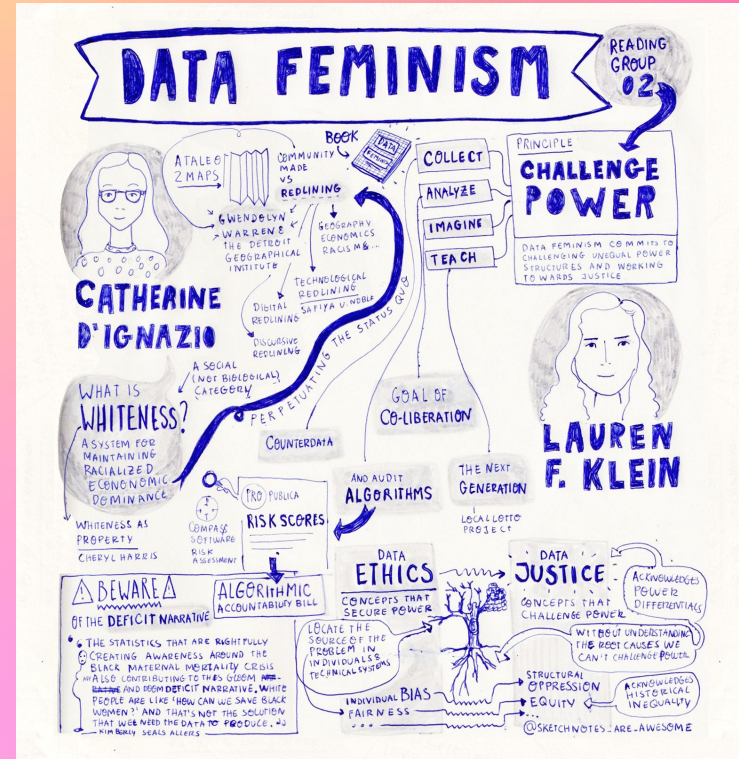 DATA FEMINISM
READING
GROUP
02
A TALE O
2 MAPS
COMMUNITY
MADE
VS
REDLINING
GWENDOLYN
WARREN &
THE DETROIT
GEOGRAPHICAL
INSTITUTE
GEOGRAPHY
ECONOMICS
RACISM &...
TECHNOLOGICAL
REDLINING
SAFIYA U. NOBLE
DIGITAL
REDLINING
DISCURSIVE
REDLINING
BOOK
DATA
FEMINISM
COLLECT
ANALYZE
IMAGINE
TEACH
PRINCIPLE
CHALLENGE
POWER
DATA FEMINISM COMMITS TO
CHALLENGING UNEQUAL POWER
STRUCTURES AND WORKING
TOWARDS JUSTICE
CATHERINE
D'IGNAZIO
LAUREN
F. KLEIN
A SOCIAL
(NOT BIOLOGICAL)
CATEGORY
WHAT IS
WHITENESS?
A SYSTEM FOR
MAINTAINING
RACIALIZED
ECONONOMIC
DOMINANCE
WHITENESS AS
PROPERTY
CHERYL HARRIS
PERPETUATING THE STATUS QUO
COUNTERDATA
GOAL OF
CO-LIBERATION
AND AUDIT
ALGORITHMS
THE NEXT
GENERATION
LOCAL LOTTO
PROJECT
PRO PUBLICA
RISK SCORES
COMPASS
SOFTWARE
RISK
ASSESSMENT
ALGORITHMIC
ACCOUNTABILITY BILL
BEWARE
OF THE DEFICIT NARRATIVE
"THE STATISTICS THAT ARE RIGHTFULLY
CREATING AWARENESS AROUND THE
BLACK MATERNAL MORTALITY CRISIS
ALSO CONTRIBUTING TO THIS GLOOM
AND DOOM DEFICIT NARRATIVE. WHITE
PEOPLE ARE LIKE 'HOW CAN WE SAVE BLACK
WOMEN?' AND THAT'S NOT THE SOLUTION
THAT WE NEED THE DATA TO PRODUCE."
KIMBERLY SEALS ALLERS
DATA
ETHICS
CONCEPTS THAT
SECURE POWER
LOCATE THE
SOURCE OF THE
PROBLEM IN
INDIVIDUALS &
TECHNICAL SYSTEMS
INDIVIDUAL BIAS
FAIRNESS
...
DATA
JUSTICE
CONCEPTS THAT
CHALLENGE POWER
ACKNOWLEDGES
POWER
DIFFERENTIALS
WITHOUT UNDERSTANDING
THE ROOT CAUSES WE
CAN'T CHALLENGE POWER
STRUCTURAL
OPPRESSION
EQUITY
...
ACKNOWLEDGES
HISTORICAL
INEQUALITY
@SKETCHNOTES_ARE_AWESOME